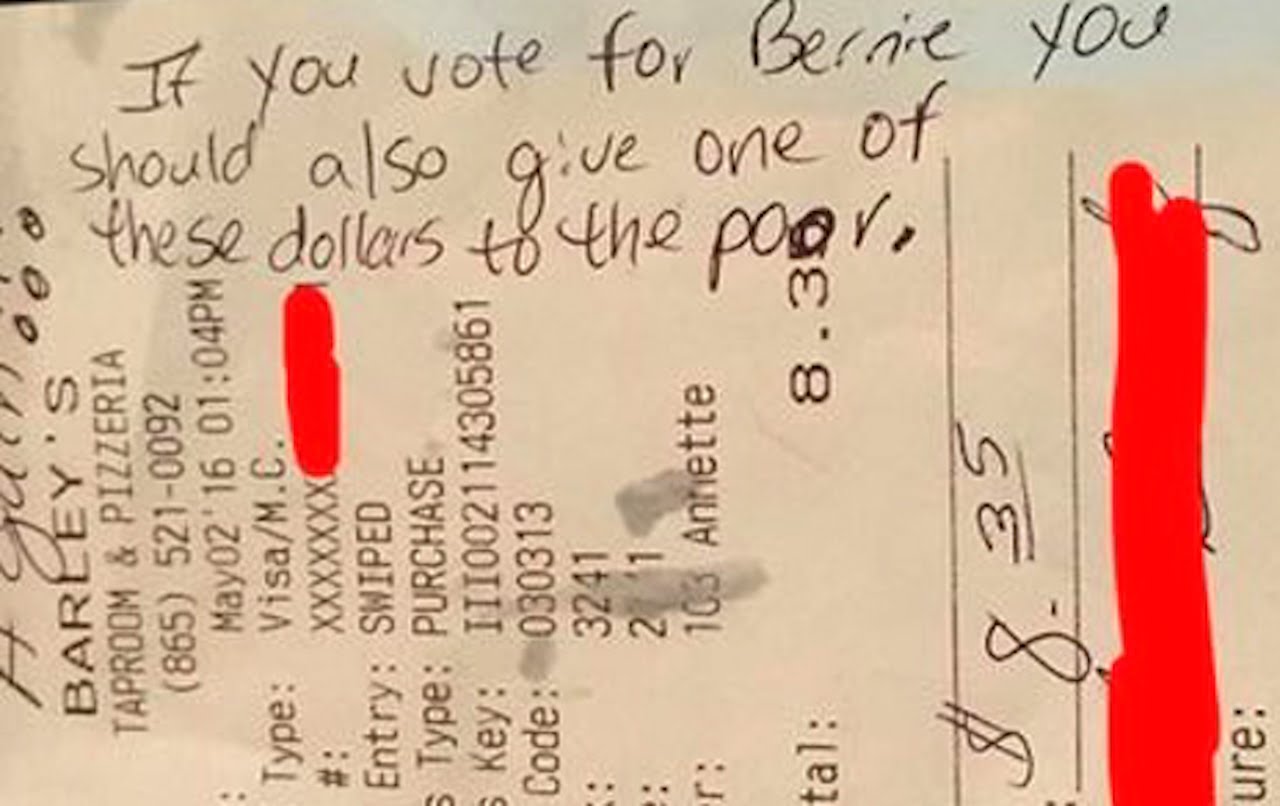 If you vote for Bernie you
should also give one of
these dollars to the poor.
BARLEY'S
TAPROOM & PIZZERIA
(865) 521-0092
May02'16 01:04PM
Type: Visa/M.C.
#: XXXXXXX
Entry: SWIPED
Type: PURCHASE
Key: III002114305861
Code: 030313
3241
103 Annette
tal: 8.3
$ 8.35
ure: